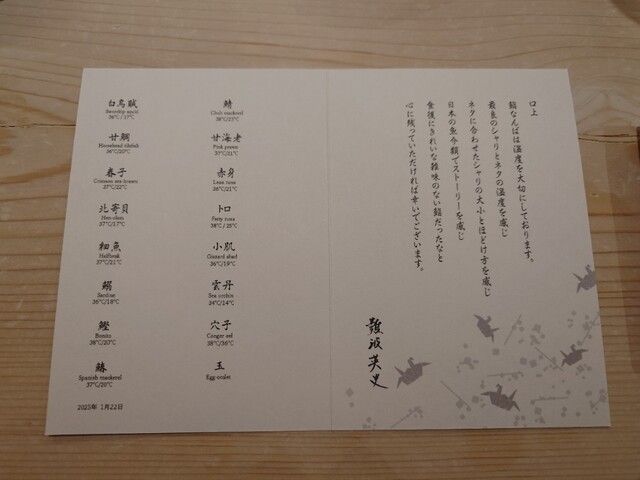 白烏賊
Swordtip squid
36℃/17℃
甘鯛
Horsehead tilefish
36℃/20℃
春子
Crimson sea bream
37℃/22℃
北寄貝
Hen clam
37℃/17℃
細魚
Halfbeak
37℃/21℃
鰯
Sardine
36℃/18℃
鰹
Bonito
38℃/20℃
鰆
Spanish mackerel
37℃/20℃
2025年 1月22日
鯖
Chub mackerel
38℃/23℃
甘海老
Pink prawn
37℃/21℃
赤身
Lean tuna
36℃/21℃
トロ
Fatty tuna
38℃/25℃
小肌
Gizzard shad
36℃/19℃
雲丹
Sea urchin
34℃/14℃
穴子
Conger eel
38℃/36℃
玉
Egg omlet
口上
鮨なんばは温度を大切にしております。
最良のシャリとネタの温度を感じ
ネタに合わせたシャリの大小とほどけ方を感じ
日本の魚介類でストーリーを感じ
食後にきれいな雑味のない鮨だったなと
心に残っていただければ幸いでございます。
難波英史